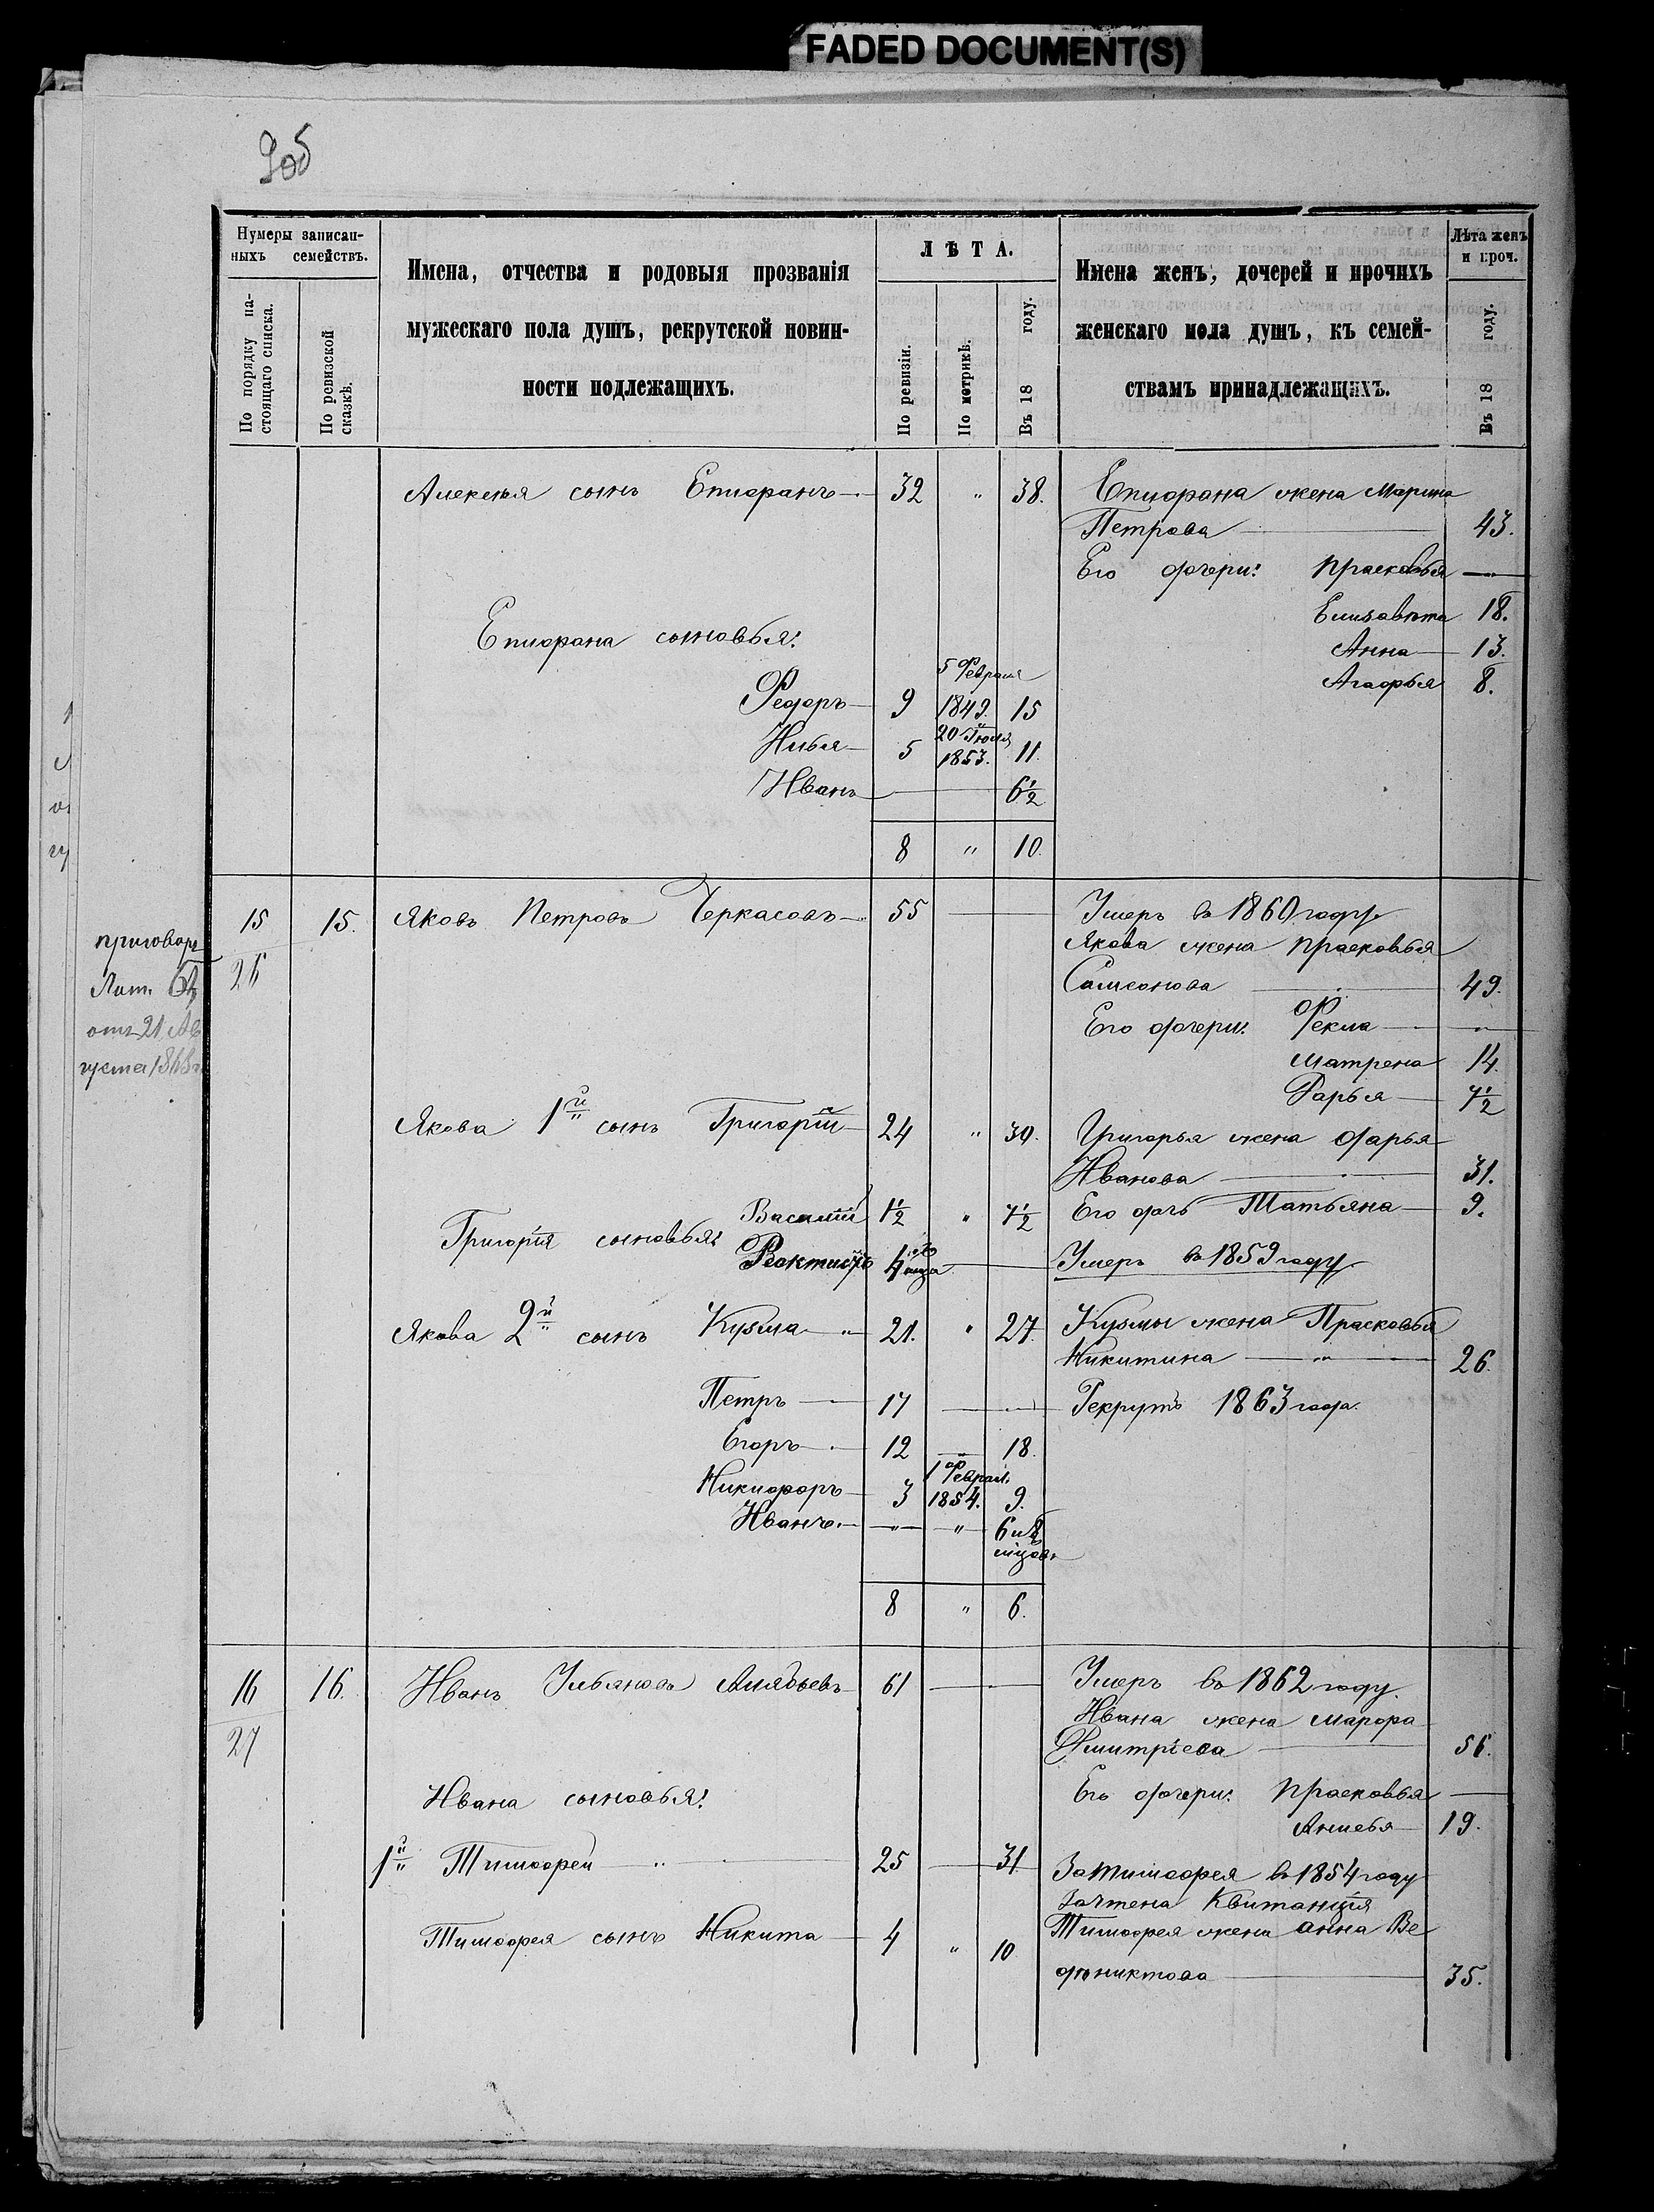 FADED DOCUMENT(S)
905
Нумеры записан-
ныхъ семействъ.
По порядку на-
стоящаго списка.
По ревизской
сказкѣ.
Имена, отчества и родовыя прозванія
мужескаго пола душъ, рекрутской повин-
ности подлежащихъ.
ЛѢТА.
По ревизіи.
По метрикѣ.
Въ 18 году.
Имена женъ, дочерей и прочихъ
женскаго пола душъ, къ семей-
ствамъ принадлежащихъ.
Лѣта женъ
и проч.
Въ 18 году.
Алексѣя сынъ Епифанъ 32 " 38. Епифана жена Марина
Петрова 43.
Его дочери: Прасковья —
Елизавѣта 18.
Епифана сыновья:
Анна 13.
Агафья 8.
5 Февраля
Федоръ 9 1849. 15
20 Іюля
Илья 5 1853. 11.
Иванъ 6½
8 " 10.
15 15. Яковъ Петровъ Черкасовъ 55 Умеръ въ 1860 году.
26
приговоръ
Лит.
отъ 21 Ав
густа
Якова жена Прасковья
Самсонова 49.
Его дочери: Фекла "
Матрена 14.
Дарья 7½
Якова 1й сынъ Григорій 24 " 30. Григорья жена Дарья
Иванова 31.
Григорія сыновья: Василій 1½ " 7½ Его дочь Татьяна 9.
Феоктистъ 4 Умеръ въ 1859 году
Якова 2й сынъ Кузьма 21. " 27. Кузмы жена Прасковья
Никитина 26.
Петръ 17 Рекрутъ 1863 года.
Егоръ 12 18.
1 Феврал.
Никифоръ 3 1854. 9.
Иванъ " " 6 и 8
мѣсцовъ
8 " 6.
16 16. Иванъ Ульяновъ Алябьевъ 61 Умеръ въ 1862 году.
27
Ивана жена Марфа
Дмитріева 56.
Ивана сыновья:
Его дочери: Прасковья —
Анисья 19.
1й Тимофей 25 31 За Тимофея въ 1854 году
Зачтена Квитанція
Тимофея сынъ Никита 4 " 10 Тимофея жена Анна Ве
дѣниктова 35.